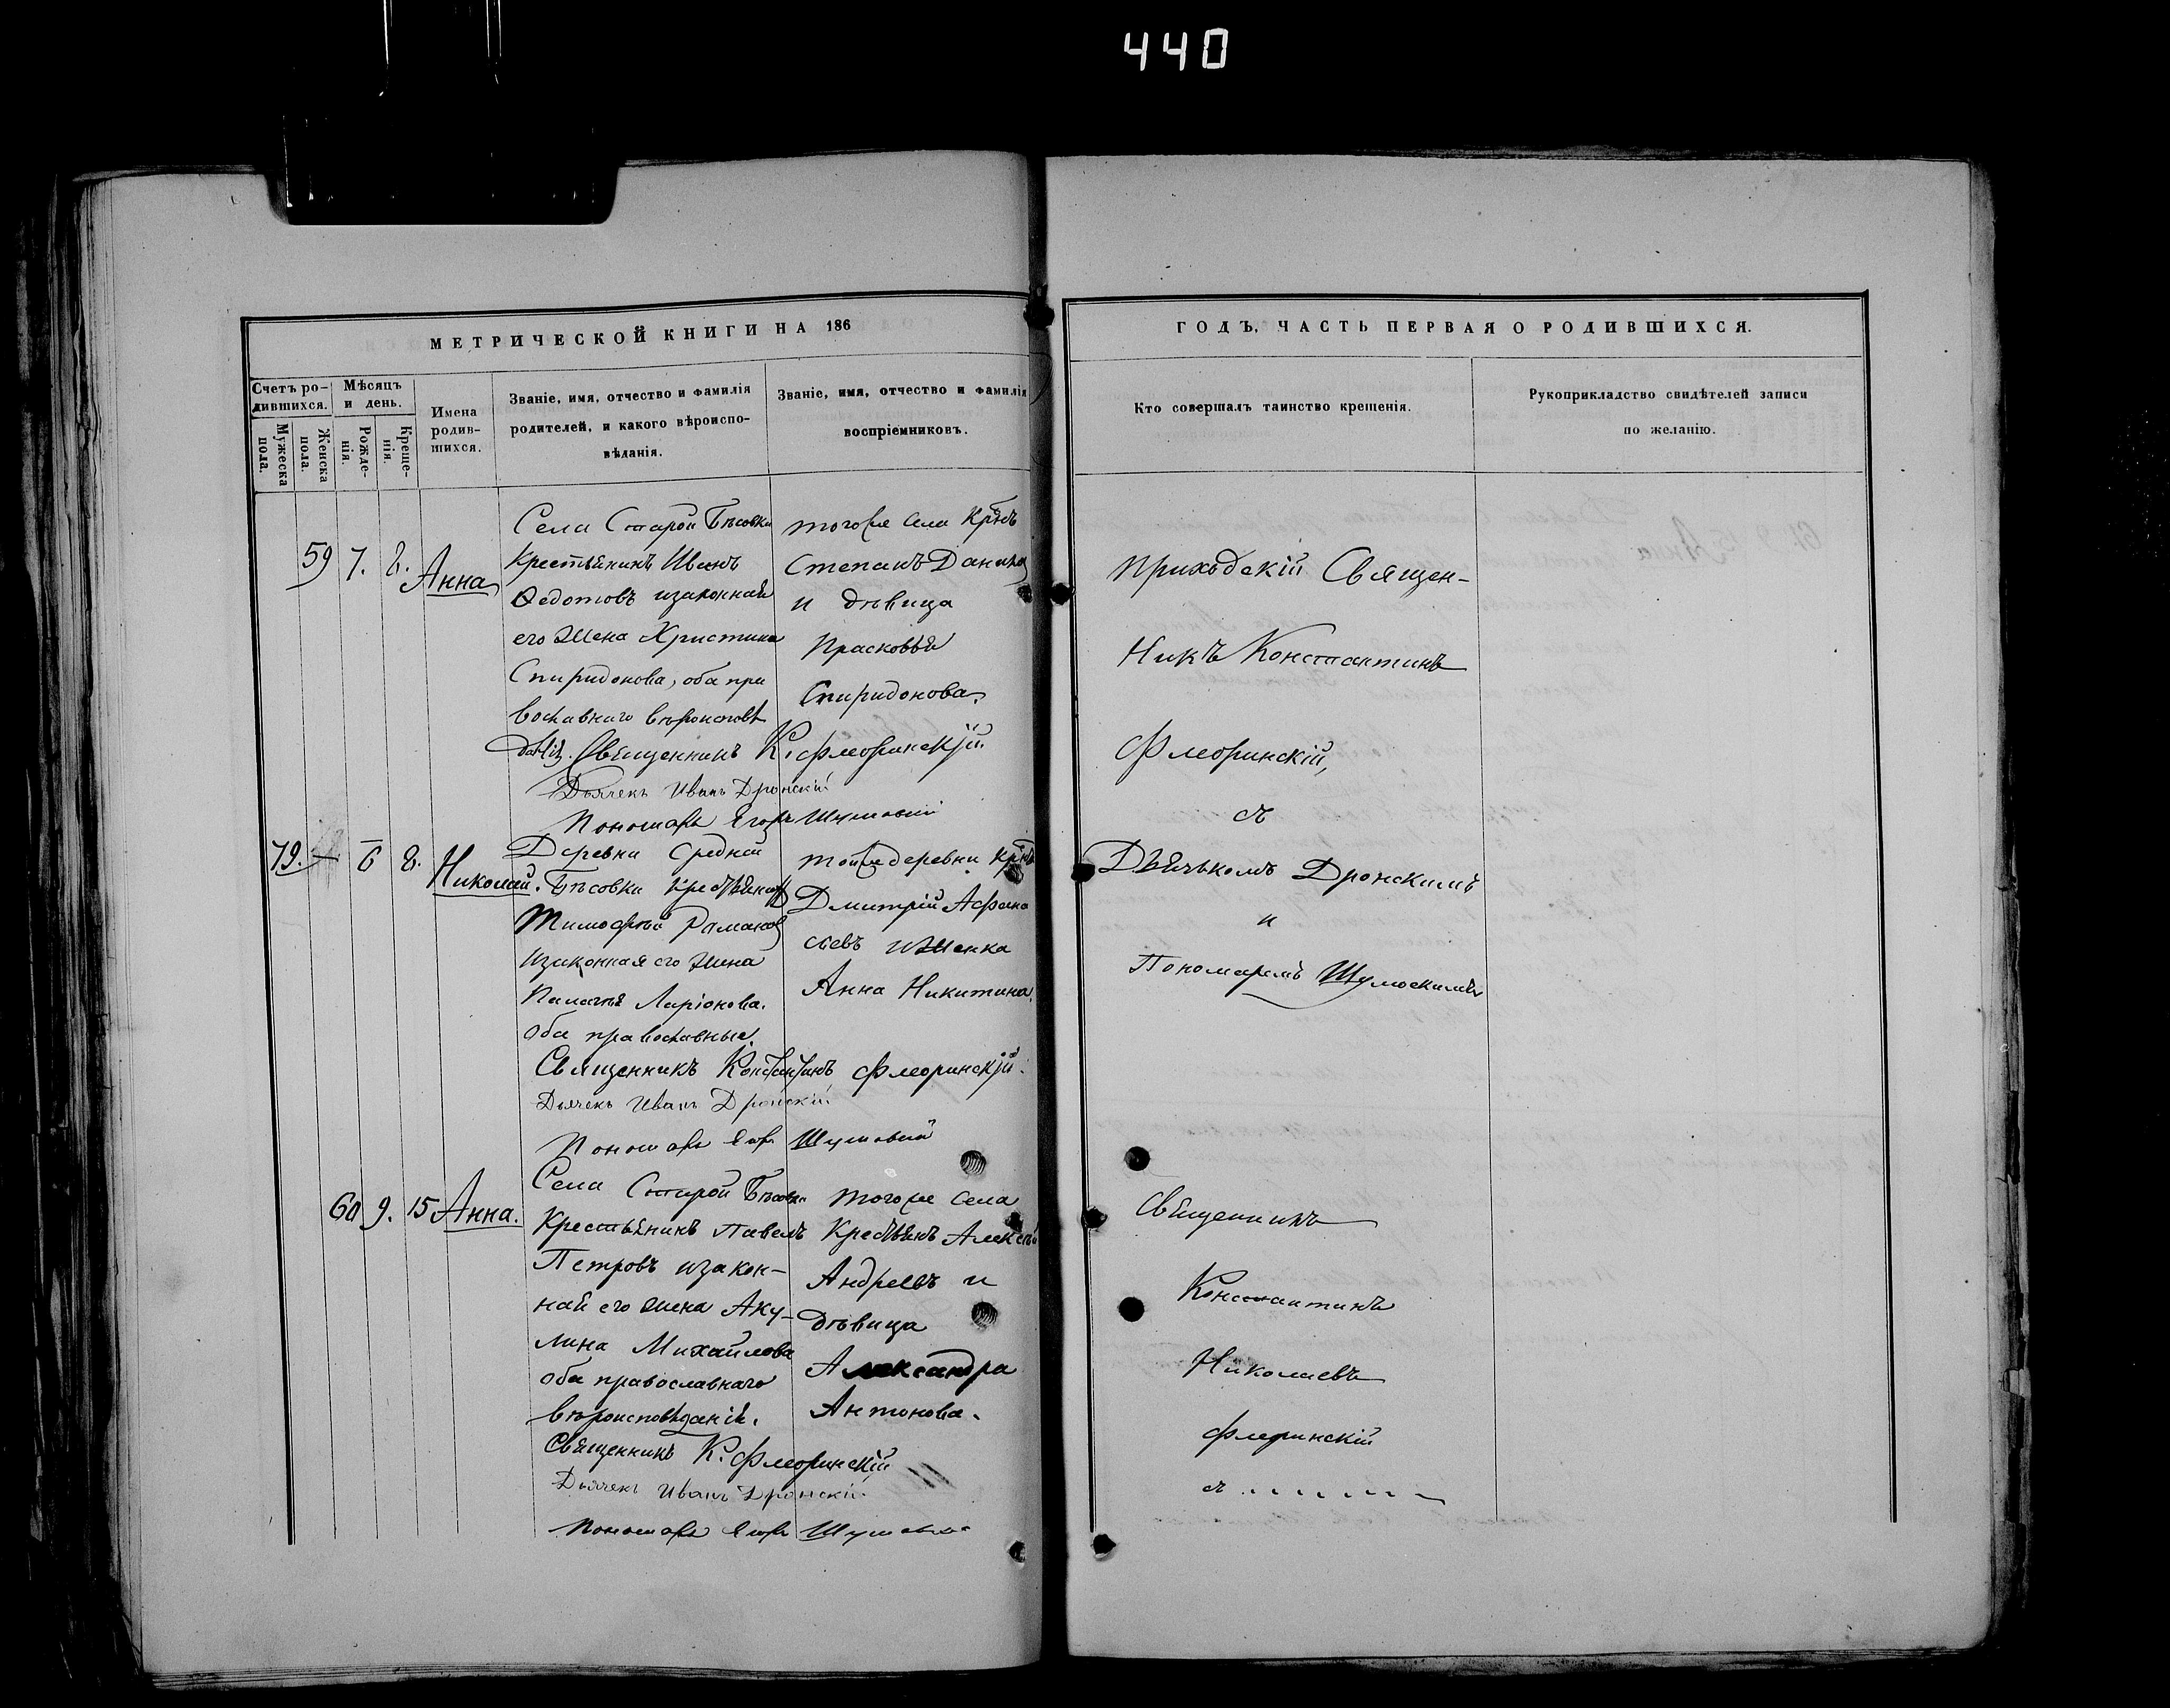 440
МЕТРИЧЕСКОЙ КНИГИ НА 186
Счетъ ро-
дившихся.
Мѣсяцъ
и день.
Мужеска
пола.
Женска
пола.
Рожде-
нія.
Креще-
нія.
Имена
родив-
шихся.
Званіе, имя, отчество и фамилія
родителей, и какого вѣроиспо-
вѣданія.
Званіе, имя, отчество и фамилія
воспріемниковъ.
59 7. 8. Анна
Села Старой Бѣсовки
Крестьянинъ Иванъ
Ѳедотовъ изаконная
его жена Христина
Спиридонова, оба пра
вославнаго вѣроисповѣ
данія. Священникъ К. Флеоринскій
Дьячекъ Иванъ Дронскій
Пономарь Егоръ
тогоже села Крнъ
Степанъ
и дѣвица
Прасковья
Спиридонова.
79. — 6 8. Николай.
Деревни Средней
Бѣсовки
Тимофей Романовъ
изаконная его жена
Ларіонова.
оба православные.
Священникъ Константинъ Флеоринскій.
Дьячекъ Иванъ Дронскій
Пономарь
тойже деревни
Дмитрій Афана
сьевъ иженка
Анна Никитина.
60 9. 15 Анна.
Села Старой Бѣсовки
Крестьянинъ Павелъ
Петровъ изакон-
ная его жена Аку-
лина Михайлова
оба православнаго
вѣроисповѣданія.
Священникъ К. Флеоринскій
Дьячекъ Иванъ Дронскій
Пономарь
тогоже села
Алексѣй
Андреевъ и
дѣвица
Александра
Антонова.
ГОДЪ, ЧАСТЬ ПЕРВАЯ О РОДИВШИХСЯ.
Кто совершалъ таинство крещенія.
Рукоприкладство свидѣтелей записи
по желанію.
Приходскій Священ-
никъ Константинъ
Флеоринскій,
съ
Дьячькомъ Дронскимъ
и
Пономаремъ
Священникъ
Константинъ
Николаевъ
Флеринскій
съ . . . . . . .